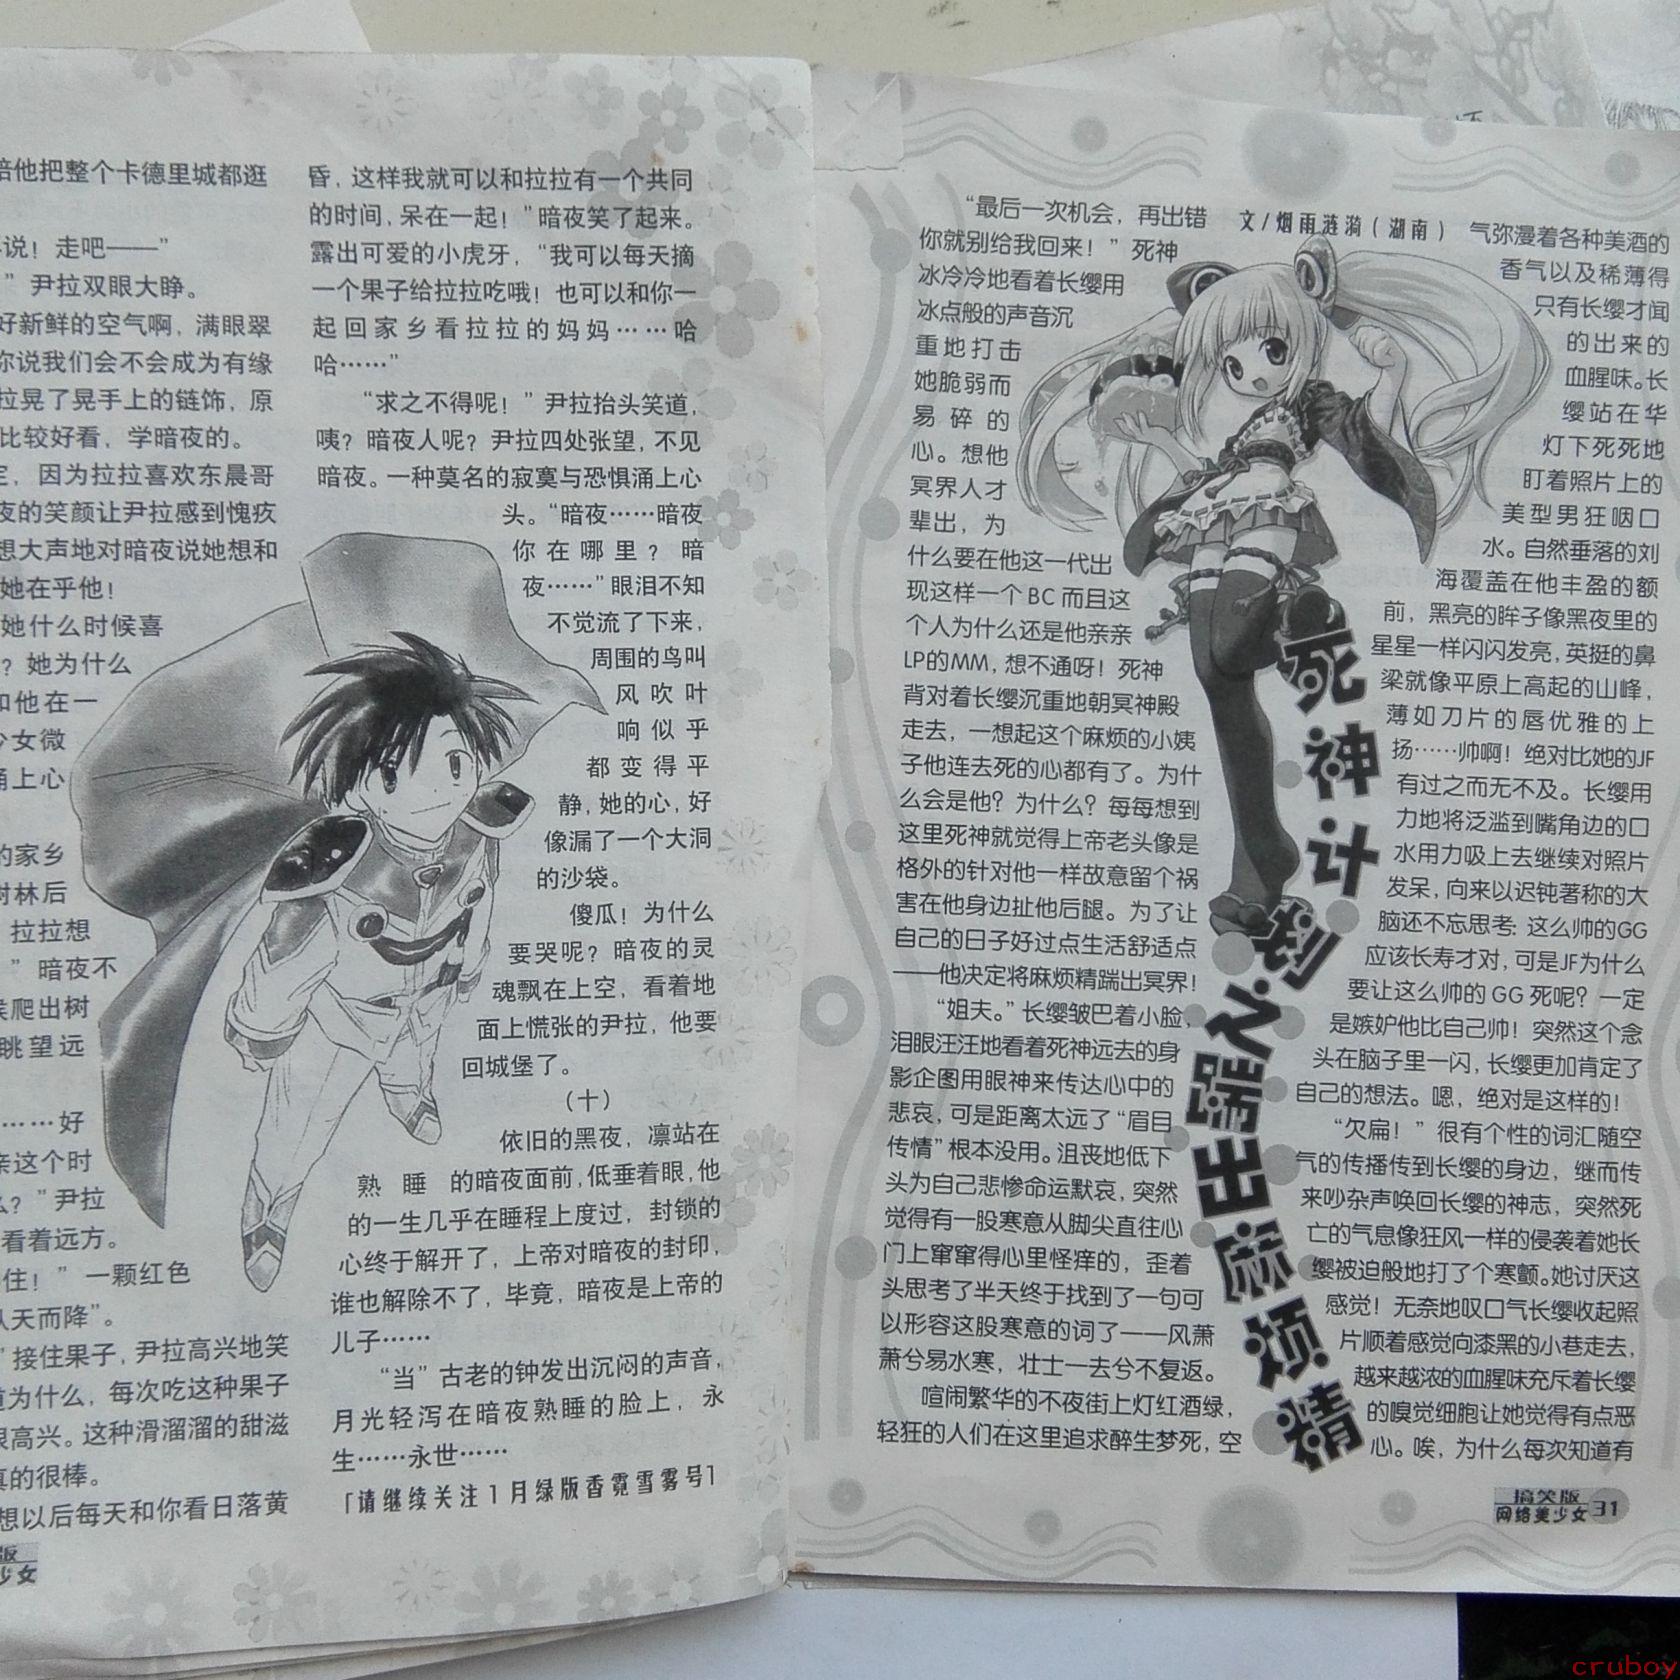 陪他把整个卡德里城都逛
说！走吧——”
”尹拉双眼大睁。
好新鲜的空气啊，满眼翠
你说我们会不会成为有缘
拉晃了晃手上的链饰，原
比较好看，学暗夜的。
定，因为拉拉喜欢东晨哥
夜的笑颜让尹拉感到愧疚
想大声地对暗夜说她想和
她在乎他！
她什么时候喜
？她为什么
和他在一
少女微
涌上心
的家乡
树林后
拉拉想
”暗夜不
候爬出树
眺望远
……好
亲这个时
么？”尹拉
看着远方。
住！”一颗红色
从天而降”。
”接住果子，尹拉高兴地笑
道为什么，每次吃这种果子
很高兴。这种滑溜溜的甜滋
真的很棒。
想以后每天和你看日落黄
版
少女
昏，这样我就可以和拉拉有一个共同
的时间，呆在一起！”暗夜笑了起来。
露出可爱的小虎牙，“我可以每天摘
一个果子给拉拉吃哦！也可以和你一
起回家乡看拉拉的妈妈……哈
哈……”
“求之不得呢！”尹拉抬头笑道，
咦？暗夜人呢？尹拉四处张望，不见
暗夜。一种莫名的寂寞与恐惧涌上心
头。“暗夜……暗夜
你在哪里？暗
夜……”眼泪不知
不觉流了下来，
周围的鸟叫
风吹叶
响似乎
都变得平
静，她的心，好
像漏了一个大洞
的沙袋。
傻瓜！为什么
要哭呢？暗夜的灵
魂飘在上空，看着地
面上慌张的尹拉，他要
回城堡了。
（十）
依旧的黑夜，凛站在
熟睡的暗夜面前，低垂着眼，他
的一生几乎在睡程上度过，封锁的
心终于解开了，上帝对暗夜的封印，
谁也解除不了，毕竟，暗夜是上帝的
儿子……
“当”古老的钟发出沉闷的声音，
月光轻泻在暗夜熟睡的脸上，永
生……永世……
「请继续关注1月绿版香霓雪雾号」
“最后一次机会，再出错
你就别给我回来！”死神
冰冷冷地看着长缨用
冰点般的声音沉
重地打击
她脆弱而
易碎的
心。想他
冥界人才
辈出，为
什么要在他这一代出
现这样一个BC而且这
个人为什么还是他亲亲
LP的MM，想不通呀！死神
背对着长缨沉重地朝冥神殿
走去，一想起这个麻烦的小姨
子他连去死的心都有了。为什
么会是他？为什么？每每想到
这里死神就觉得上帝老头像是
格外的针对他一样故意留个祸
害在他身边扯他后腿。为了让
自己的日子好过点生活舒适点
——他决定将麻烦精踹出冥界！
“姐夫。”长缨皱巴着小脸，
泪眼汪汪地看着死神远去的身
影企图用眼神来传达心中的
悲哀，可是距离太远了“眉目
传情”根本没用。沮丧地低下
头为自己悲惨命运默哀，突然
觉得有一股寒意从脚尖直往心
门上窜窜得心里怪痒的，歪着
头思考了半天终于找到了一句可
以形容这股寒意的词了——风萧
萧兮易水寒，壮士一去兮不复返。
喧闹繁华的不夜街上灯红酒绿，
轻狂的人们在这里追求醉生梦死，空
文/烟雨涟漪（湖南）
死神计划之踹出麻烦精
气弥漫着各种美酒的
香气以及稀薄得
只有长缨才闻
的出来的
血腥味。长
缨站在华
灯下死死地
盯着照片上的
美型男狂咽口
水。自然垂落的刘
海覆盖在他丰盈的额
前，黑亮的眸子像黑夜里的
星星一样闪闪发亮，英挺的鼻
梁就像平原上高起的山峰，
薄如刀片的唇优雅的上
扬……帅啊！绝对比她的JF
有过之而无不及。长缨用
力地将泛滥到嘴角边的口
水用力吸上去继续对照片
发呆，向来以迟钝著称的大
脑还不忘思考：这么帅的GG
应该长寿才对，可是JF为什么
要让这么帅的GG死呢？一定
是嫉妒他比自己帅！突然这个念
头在脑子里一闪，长缨更加肯定了
自己的想法。嗯，绝对是这样的！
“欠扁！”很有个性的词汇随空
气的传播传到长缨的身边，继而传
来吵杂声唤回长缨的神志，突然死
亡的气息像狂风一样的侵袭着她长
缨被迫般地打了个寒颤。她讨厌这
感觉！无奈地叹口气长缨收起照
片顺着感觉向漆黑的小巷走去，
越来越浓的血腥味充斥着长缨
的嗅觉细胞让她觉得有点恶
心。唉，为什么每次知道有
搞笑版
网络美少女 31
cruboy